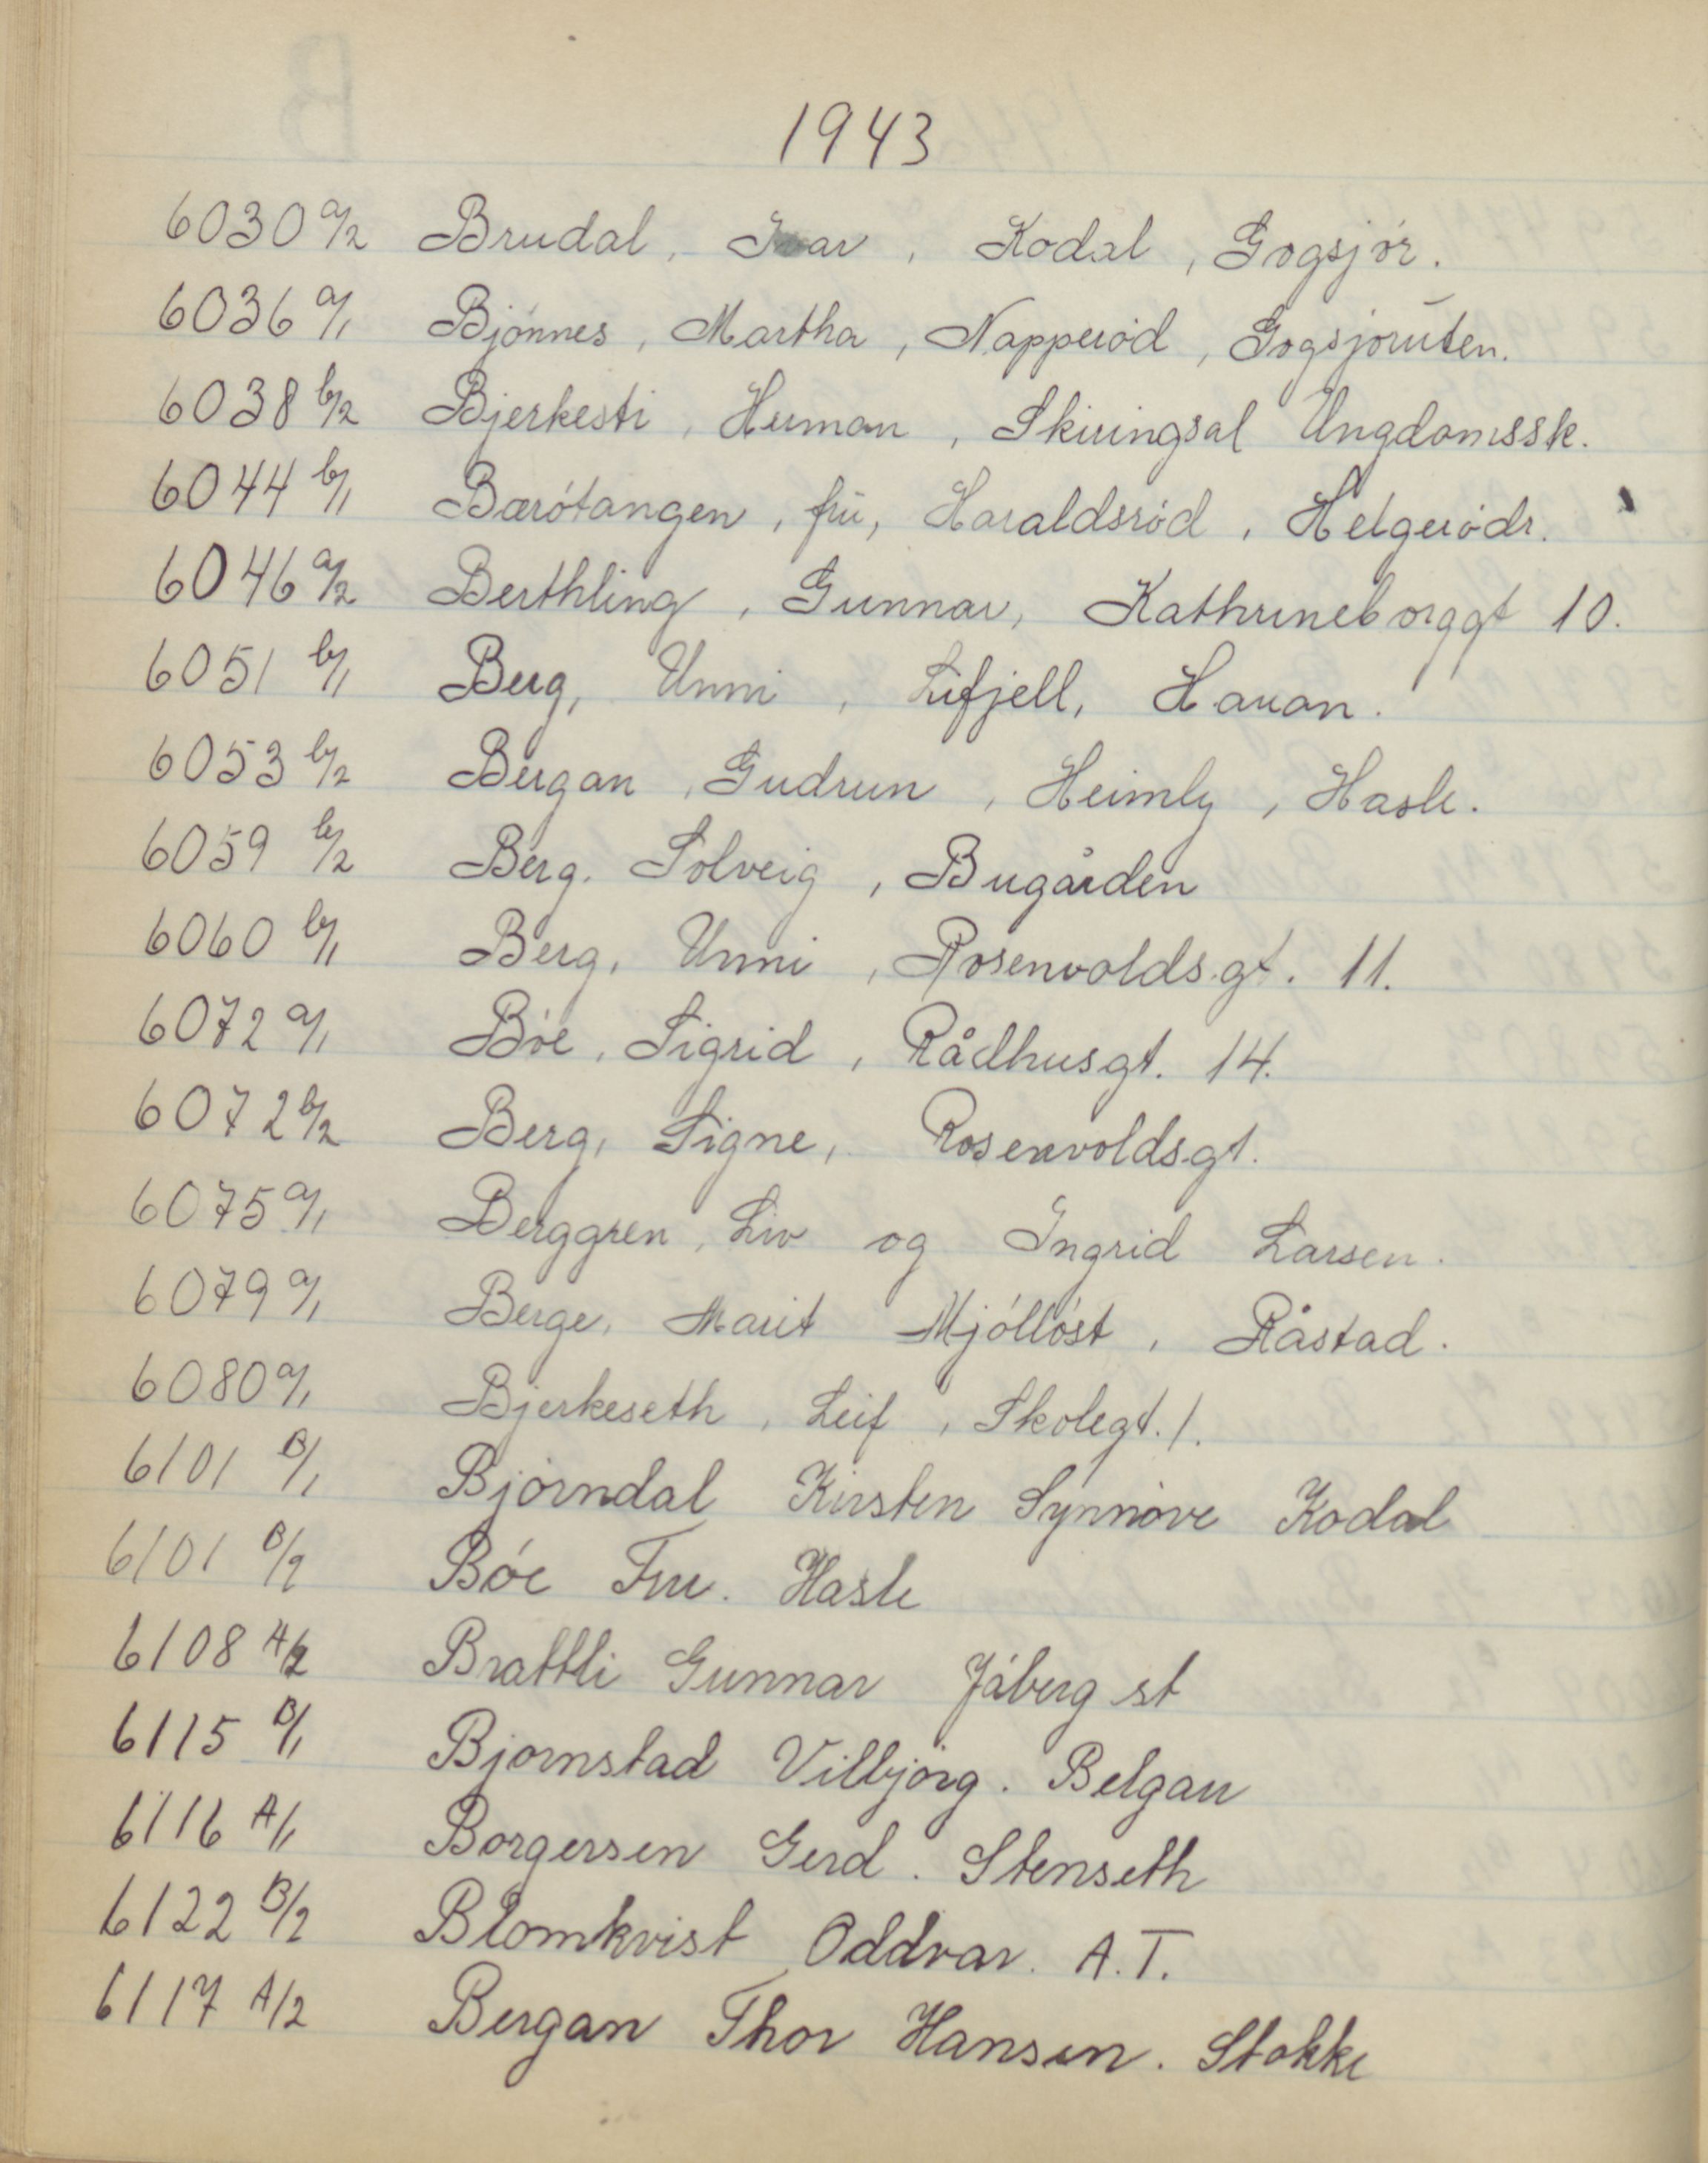 1943
6030 a/2 Brudal, Ivar, Kodal, Gogsjør.
6036 a/1 Bjønnes, Martha, Napperød, Gogsjøruten.
6038 b/2 Bjerkesti, Herman, Skiringsal Ungdomssk.
6044 b/1 Bærøtangen, fru, Haraldsrød, Helgerødr.
6046 a/2 Berthling, Gunnar, Kathrineborggt 10.
6051 b/1 Berg, Unni, Lifjell, Hauan.
6053 b/2 Bergan, Gudrun, Heimly, Hasle.
6059 b/2 Berg. Solveig, Bugården
6060 b/1 Berg, Unni, Rosenvoldsgt. 11.
6072 a/1 Bøe, Sigrid, Rådhusgt. 14.
6072 b/2 Berg, Signe, Rosenvoldsgt.
6075 a/1 Berggren, Liv og Ingrid Larsen.
6079 a/1 Berge, Marit Mjølløst, Råstad.
6080 a/1 Bjerkeseth, Leif, Skolegt. 1.
6101 B/1 Bjørndal Kirsten Synnøve Kodal
6101 B/2 Bøe Fru. Hasle
6108 A/2 Brattli Gunnar Jåberg st
6115 B/1 Bjørnstad Vilbjørg. Belgau
6116 A/1 Borgersen Gerd. Stenseth
6122 B/2 Blomkvist Oddvar. A.T.
6117 A/2 Bergan Thor Hansen. Stokke